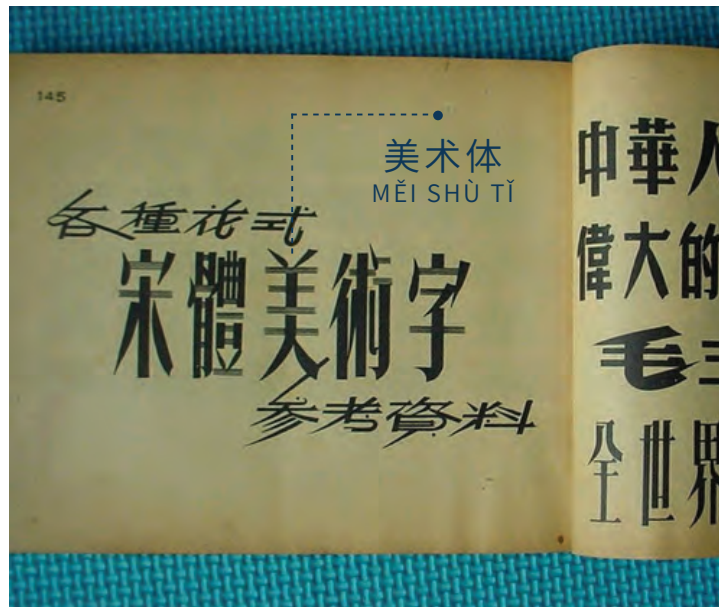 145
美术体
MĚI SHÙ TǏ
各種花式
宋體美術字
参考資料
中華人
偉大的
毛主
全世界